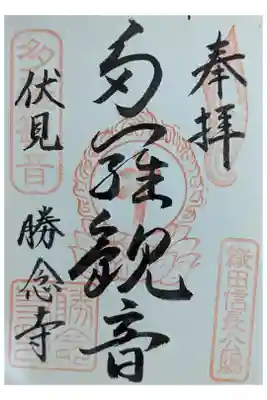 奉拝
織田信長公賜
多羅観音
多羅観音
伏見 勝念寺